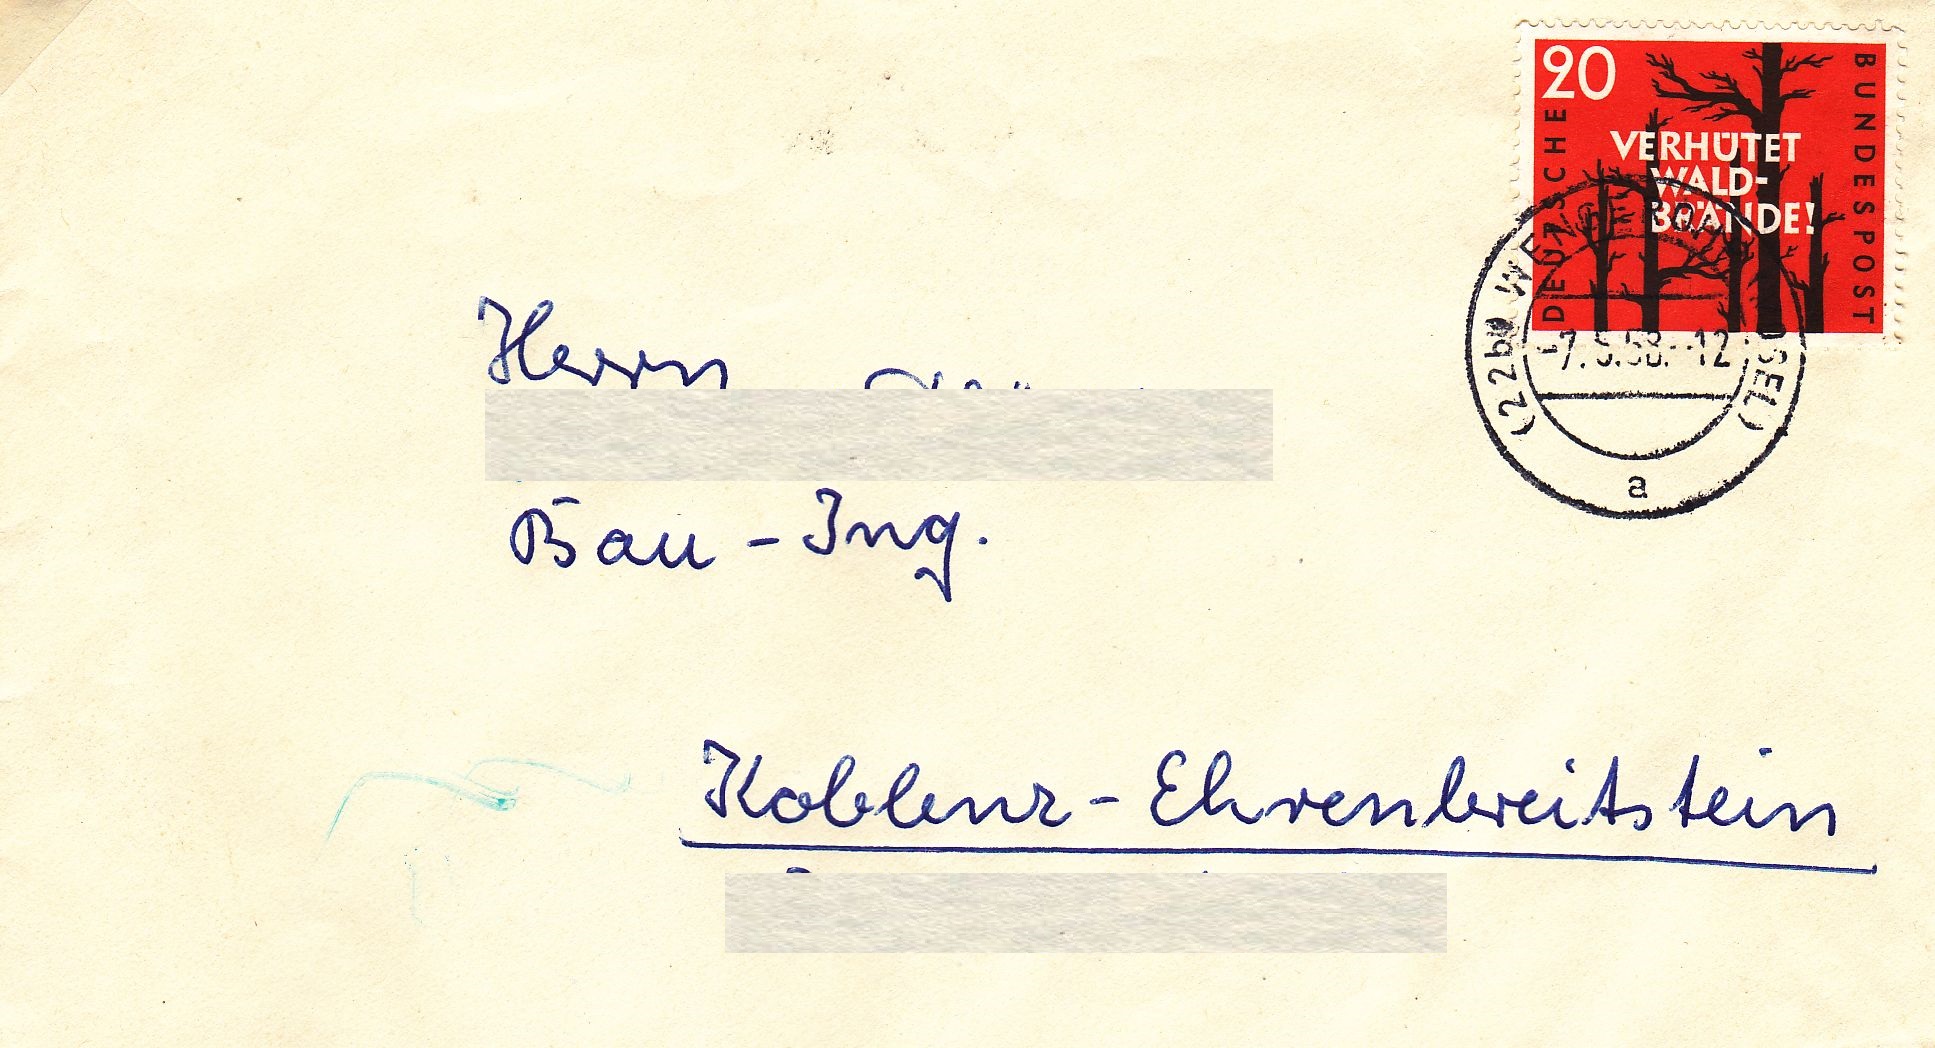 20
DEUTSCHE
BUNDESPOST
VERHÜTET
WALD-
BRÄNDE!
(22b)
-7.5.58.-12
a
Herrn
Bau-Ing.
Koblenz-Ehrenbreitstein